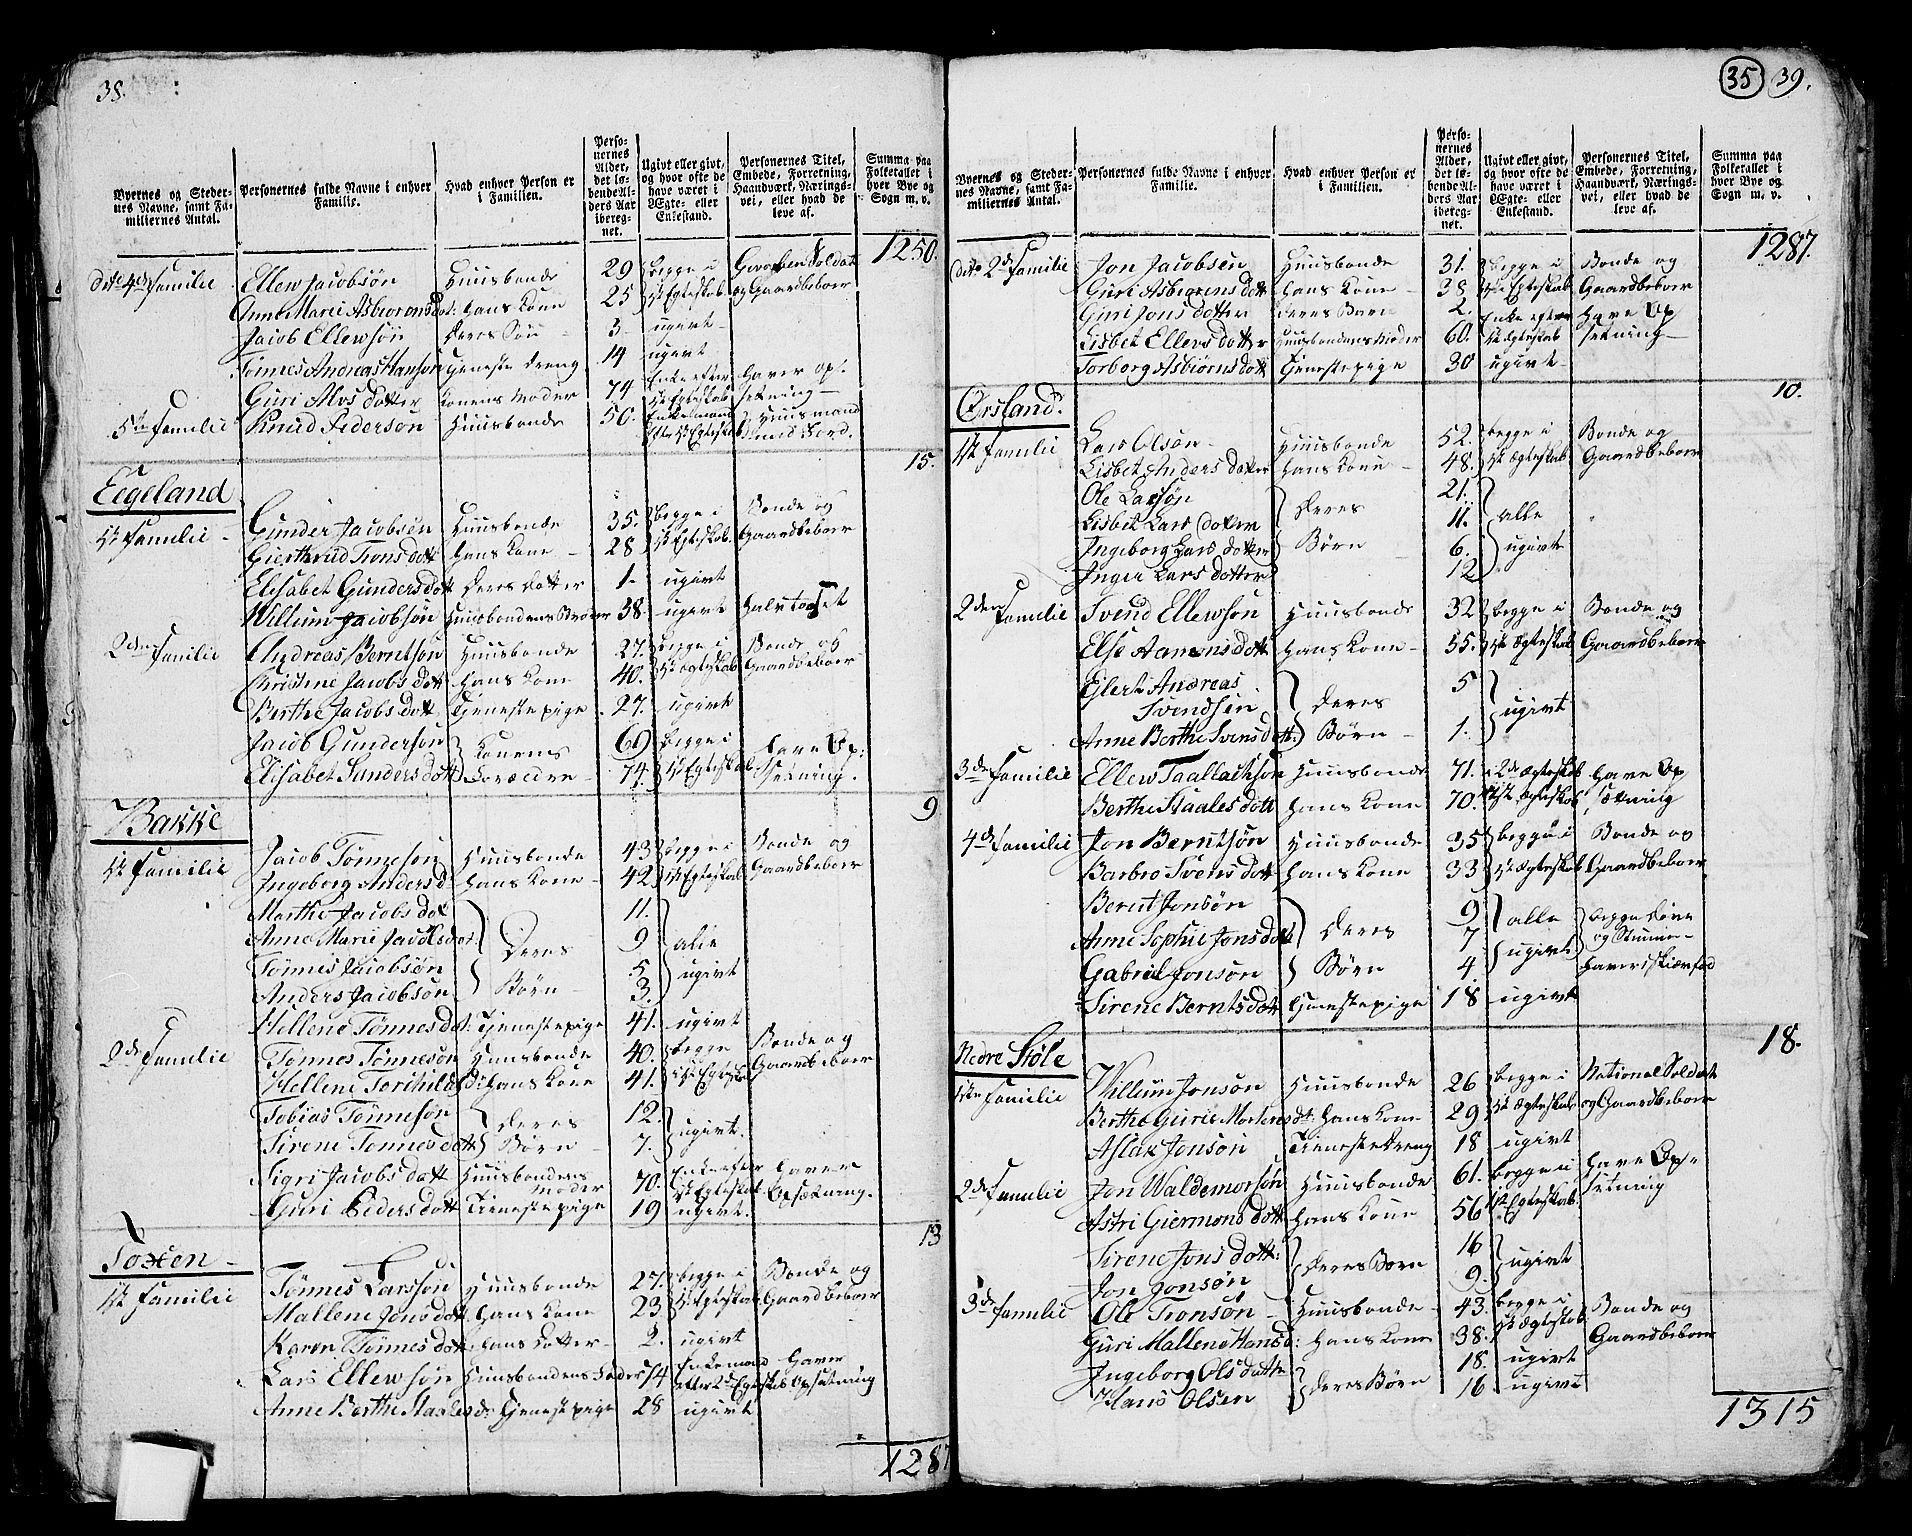 38.
Byernes og Steder-
nes Navne, samt Fa-
miliernes Antal.
Personernes fulde Navne i enhver
Familie.
Hvad enhver Person er
i Familien.
Perso-
nernes
Alder,
det lø-
bende Al-
ders Aar
ibereg-
net.
Ugivt eller givt,
og hvor ofte de
have været i
Egte- eller
Enkestand.
Personernes Titel,
Embede, Forretning,
Haandværk, Nærings-
vei, eller hvad de
leve af.
Summa paa
Folketallet i
hver Bye og
Sogn m. v.
1250.
dito 4de Familie Ellew Jacobsøn Huusbonde 29 begge i Gevorben Soldat
Anne Marie Asbiorensdot: hans Kone 25 1st Egteskab og Gaardbeboer
Jacob Ellewsøn deres Søn 3 ugivt
Tønnes Andreas Hansøn tjeneste dreng 14 ugivt
Guri Alvs dotter Konens Moder 74 Enke efter haver Op:
1st Egteskab setning
5te Familie Knud Pedersøn Huusbonde 50. Enkemand Huusmand
efter 1st Egteskab med Jord.
15.
Eegeland
1st Familie Gunder Jacobsen Huusbonde 35. begge i Bonde og
Gierthrud Trons dott hans Kone 28 1st Egteskab. Gaardbeboer
Elisabet Gunders dott deres Dotter 1. ugivt
Willum Jacobsøn Huusbondens Broder 38. ugivt halv toset
2den Familie Andreas Berntsøn Huusbonde 27. begge i Bonde og
Christine Jacobs dott hans Kone 40. 1st Egteskab Gaardbeboer
Berthe Jacobs dott Tjenestepige 27. ugivt
Jacob Gundersøn Konens 69 begge i have Op:
Elisabet Sanders dott Forældre 74. 1st Egteskab setning.
9
Bakke
1st Familie Jacob Tønnesøn Huusbonde 43 begge i Bonde og
Ingeborg Anders d: hans Kone 42 1st Egteskab Gaardbeboer
Marthe Jacobs dot 11.
Anne Marie Jacobsdot: Deres 9 alle
Tønnes Jacobsøn Børn 5 ugivt
Anders Jacobsøn 3.
Hellene Tønnes dot: Tjenestepige 41. ugivt
2de Familie Tønnes Tønnesøn Huusbonde 40. begge Bonde og
Hellene Torchilds d: hans Kone 41. 1st Egteskab Gaardbeboer
Tobias Tønnesøn deres 12. ugivt.
Sirene Tønnes dott Børn 7.
Sigri Jacobs dott Huusbondens Moder 70. Enke efter haver
Guri Peders dott Tienestepige 19 1st Egteskab Opsætning.
ugivt.
13
Toxen
1st Familie Tønnes Larssøn Huusbonde 27. begge i Bonde og
Mallene Jons dott hans Kone 23 1st Egteskab Gaardbeboer
Karen Tønnes dott hans dotter 2. ugivt
Lars Ellewsøn Huusbondens Fader 74 Enkemand haver
efter 2d Egteskab Opsetning
Anne Berthe Staales d: Tjenestepige 28 ugivt
1287
35 39.
Byernes og Steder-
nes Navne, samt Fa-
miliernes Antal.
Personernes fulde Navne i enhver
Familie.
Hvad enhver Person er
i Familien.
Perso-
nernes
Alder,
det lø-
bende Al-
ders Aar
ibereg-
net.
Ugivt eller givt,
og hvor ofte de
have været i
Egte- eller
Enkestand.
Personernes Titel,
Embede, Forretning,
Haandværk, Nærings-
vei, eller hvad de
leve af.
Summa paa
Folketallet i
hver Bye og
Sogn m. v.
1287.
dito 2de Familie Jon Jacobsen Huusbonde 31. begge i Bonde og
Guri Asbiorens dott hans Kone 38 1st Egteskab Gaardbeboer
Guri Jons dotter deres Barn 2.
Lisbet Ellevs dotter Huusbondens Moder 60. Enke efter have Op
1st Egteskab setning
Torborg Asbiørns dott Tjenestepige 30 ugivt
10.
Ørsland.
1st Familie Lars Olsøn Huusbonde 52. begge i Bonde og
Lisbet Anders dotter hans Kone 48. 1st Egteskab Gaardbeboer
Ole Larsøn 21.
Lisbet Lars dotter Deres 11. alle
Ingeborg Lars dotter Børn 6. ugivt
Inger Lars dotter 12
2den Familie Svend Ellewsøn Huusbonde 32 begge i Bonde og
Else Aamons dott hans Kone 35. 1st Egteskab Gaardbeboer
Ejlert Andreas
Svendsen Deres 5 ugivt
Anne Berthe Svens dott: Børn 1.
3de Familie Ellew Taallachsøn Huusbonde 71. i 2de Egteskab have Op
Berthe Staales dott hans Kone 70. 1st Egteskab sætning
4de Familie Jon Berntsøn Huusbonde 35 begge i Bonde og
Barbro Svens dott hans Kone 33 1st Egteskab Gaardbeboer
Bernt Jonsøn 9 alle begge døve
Anne Sophie Jons dott Deres 7 ugivt og Stumme
Gabriel Jonsøn Børn 4
Sirene Bernts dott Tjenestepige 18 ugivt
18.
Nedre Støle
1ste Familie Willum Jonsøn Huusbonde 26 begge i National Soldat
Berthe Guri Mortens dt: hans Kone 29 1st Egteskab og Gaardbeboer
Aslak Jonsøn Tienestedreng 18 ugivt
2de Familie Jon Waldemorsøn Huusbonde 61. begge i have Op-
Astri Giermons dott hans Kone 56 1st Egteskab. setning
Sirene Jons dott: deres Børn 16 ugivt
Jon Jonsøn 9.
3de Familie Ole Tronsøn Huusbonde 43. begge i Bonde og
Guri Mallene Hans d: hans Kone 38. 1st Egteskab Gaardbeboer
Ingeborg Ols datter deres Børn 18. ugivt
Hans Olsen 16 ugivt
1315